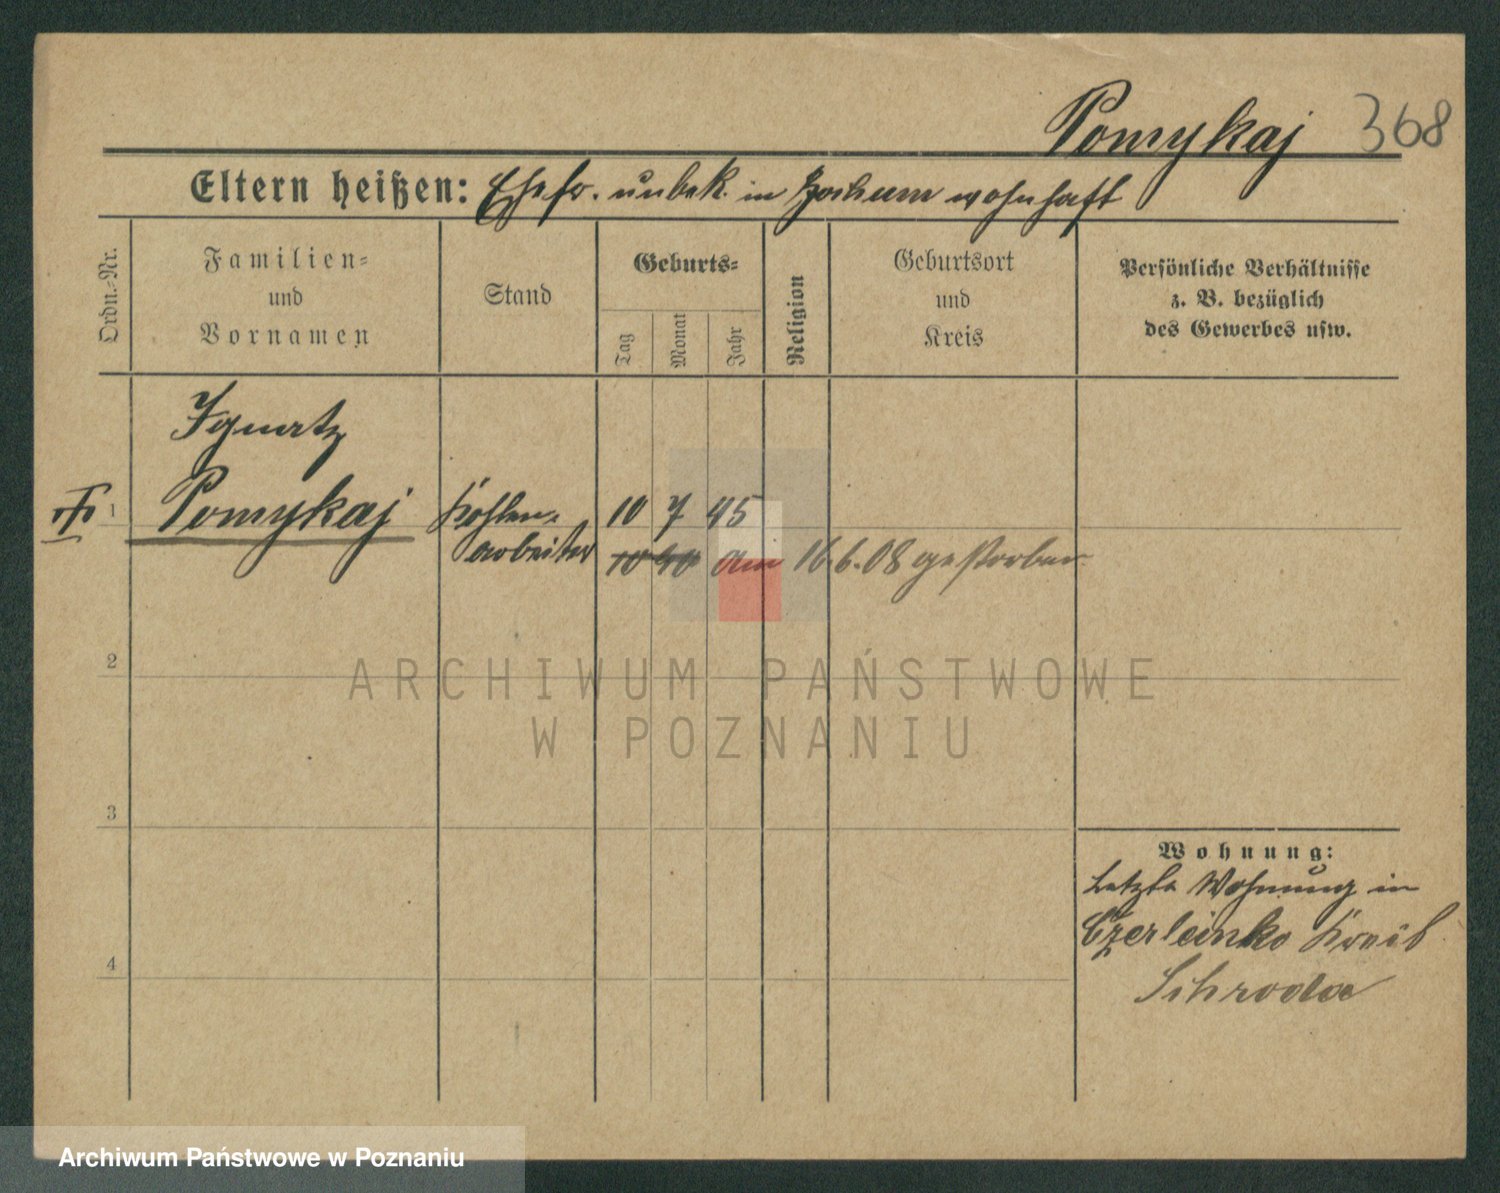 Pomykaj 368
Eltern heißen: Ehefr. unbek. in Bochum wohnhaft
Ordn.-Nr.
Familien-
und
Vornamen
Stand
Geburts-
Tag
Monat
Jahr
Religion
Geburtsort
und
Kreis
Persönliche Verhältnisse
z. B. bezüglich
des Gewerbes usw.
Ignatz
1 Pomykaj Kohlen- 10 7 45
arbeiter 10 40 am 16.6.08 gestorben
2
ARCHIWUM PAŃSTWOWE
W POZNANIU
3
Wohnung:
Letzte Wohnung in
Czerleinko Kreis
Schroda
4
Archiwum Państwowe w Poznaniu